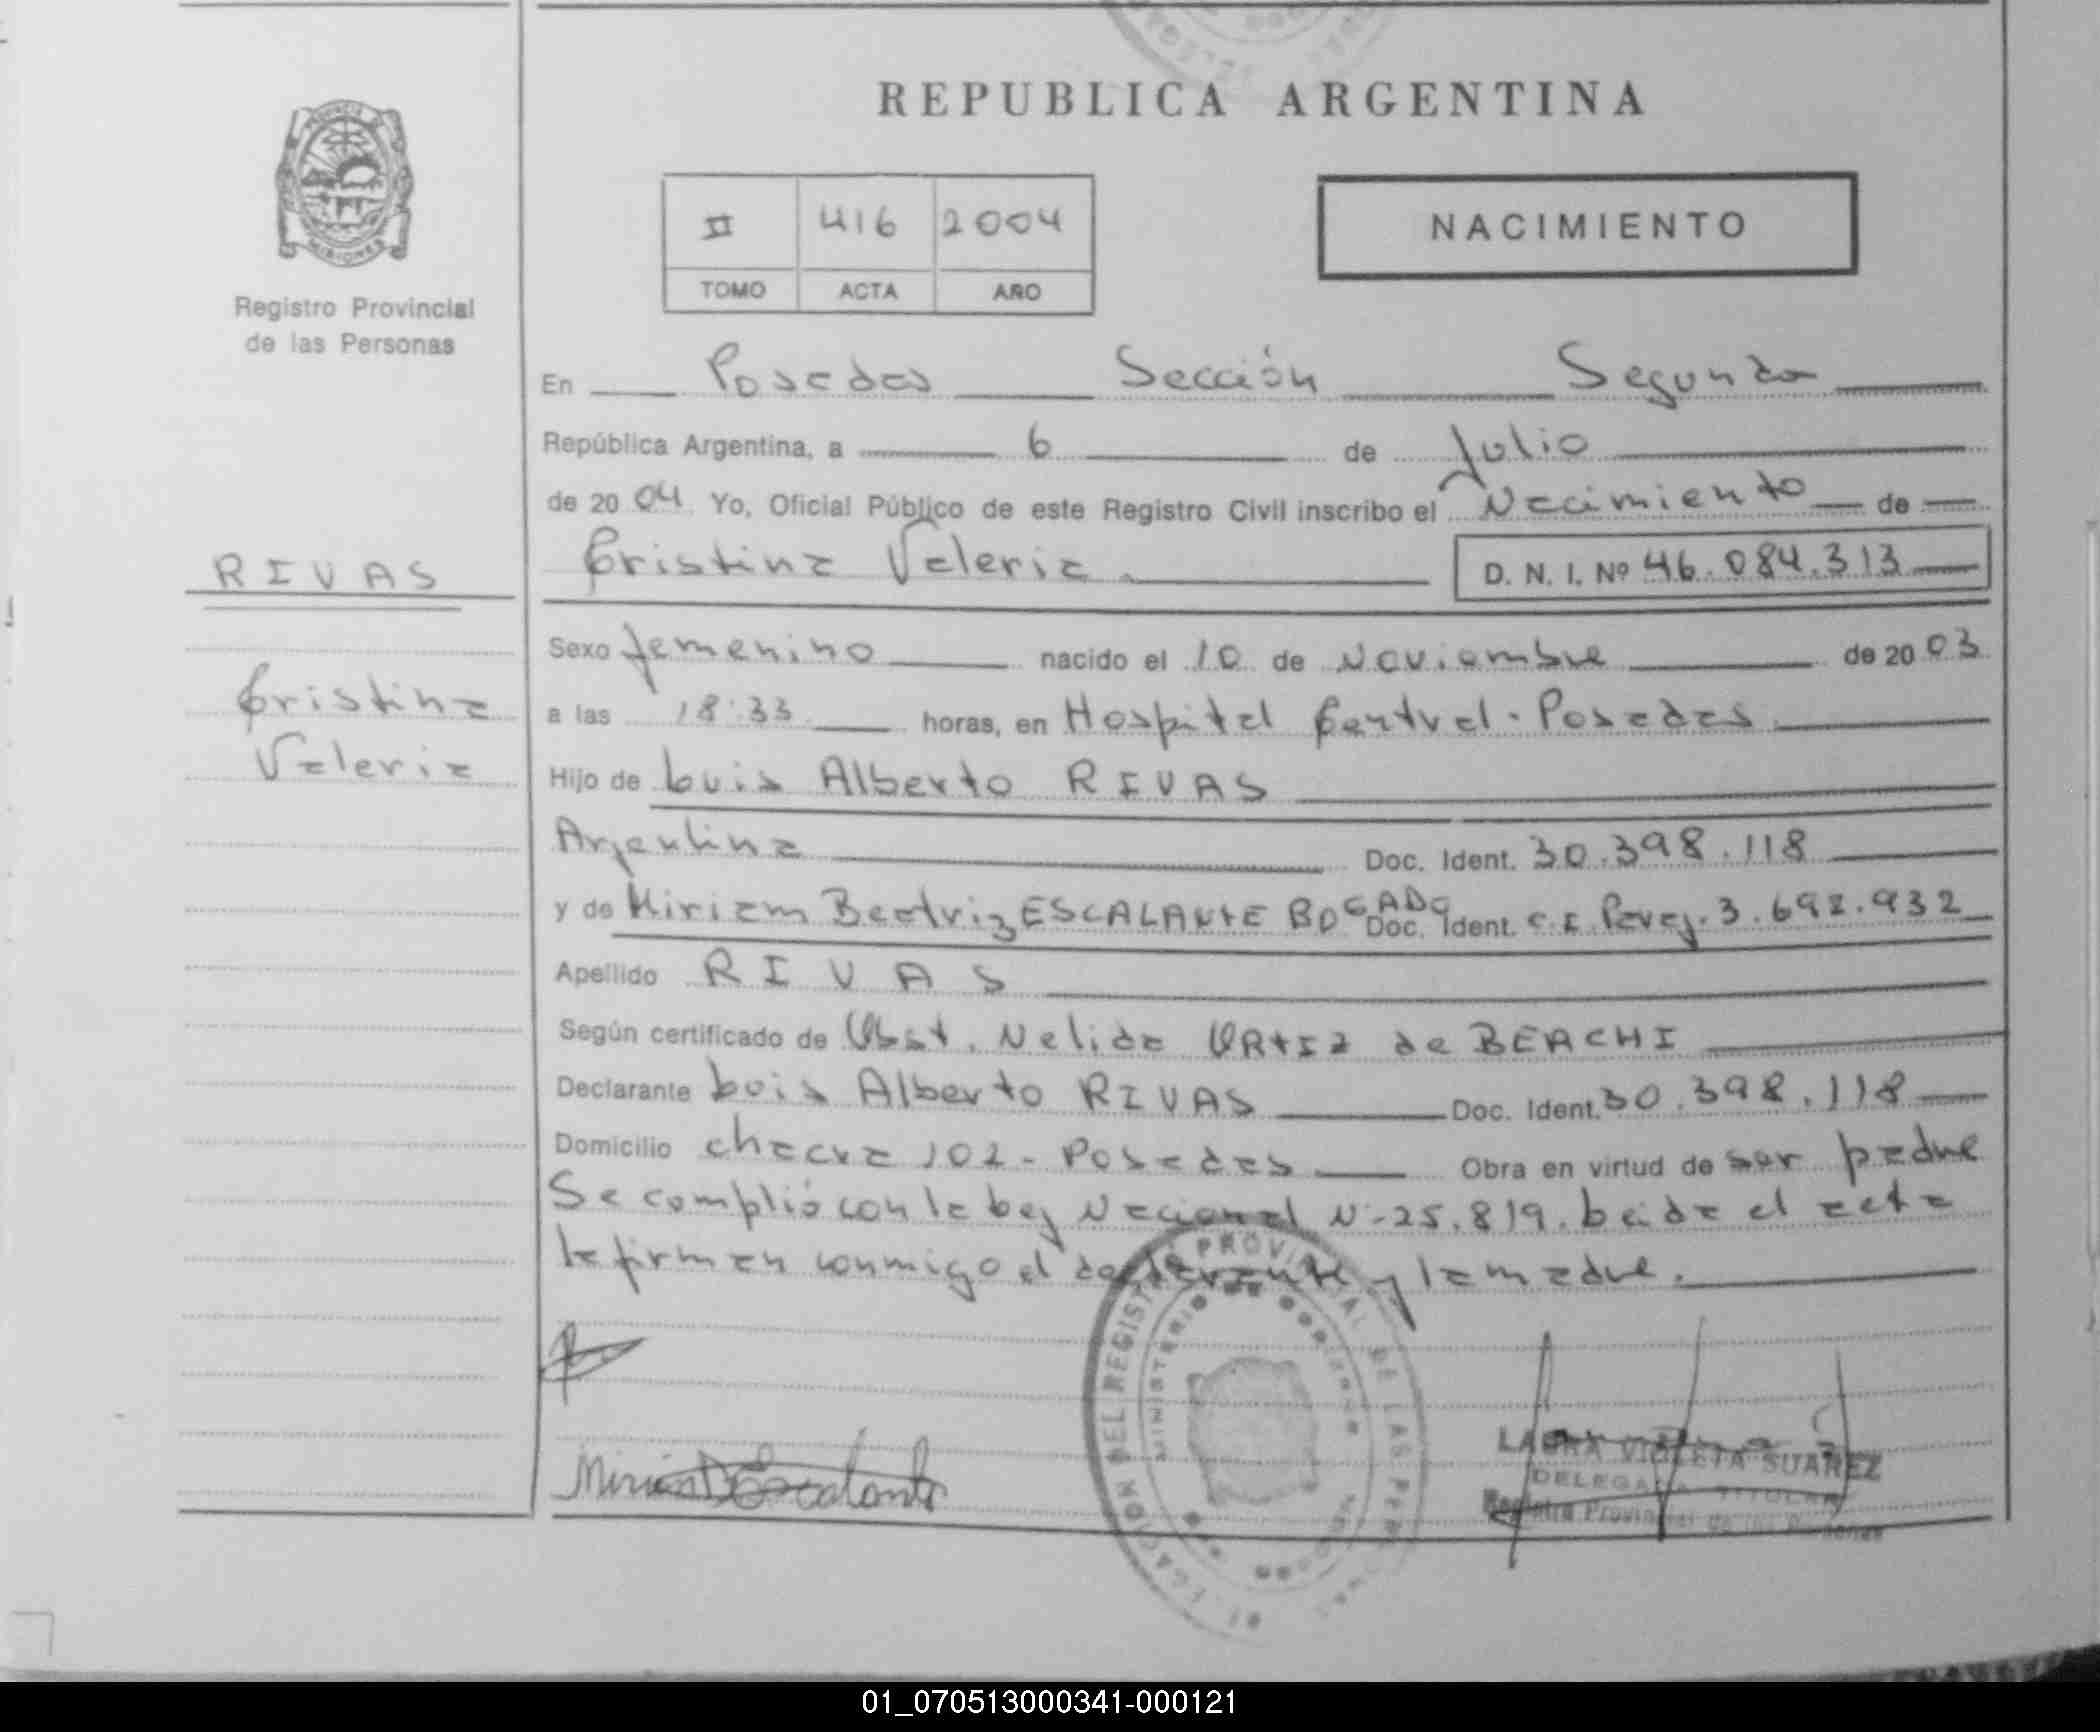 REPUBLICA ARGENTINA
PROVINCIA DE
MISIONES
Registro Provincial
de las Personas
II 416 2004
TOMO ACTA AÑO
NACIMIENTO
En Posadas Sección Segunda
República Argentina, a 6 de Julio
de 2004 Yo, Oficial Público de este Registro Civil inscribo el Nacimiento de
RIVAS
Cristina Valeria D. N. I. Nº 46.084.313
Sexo femenino nacido el 10 de Noviembre de 2003
Cristina
a las 18:33 horas, en Hospital Central - Posadas
Valeria
Hijo de Luis Alberto RIVAS
Argentina Doc. Ident. 30.398.118
y de Miriam Beatriz ESCALANTE BOGADO Doc. Ident. C.I. Parag. 3.692.932
Apellido RIVAS
Según certificado de Obst. Nelida ORtIZ de BERCHI
Declarante Luis Alberto RIVAS Doc. Ident. 30.398.118
Domicilio chacra 102 - Posadas Obra en virtud de ser padre
Se complió con la Ley Nacional N-25.819. Leida el acta
la firman conmigo el declarante y la madre.
DELEGACION DEL REGISTRO PROVINCIAL DE LAS PERSONAS
MINISTERIO DE GOBIERNO
Miriam Escalante
LAURA VIOLETA SUAREZ
DELEGADA TITULAR
Registro Provincial de las Personas
01_070513000341-000121